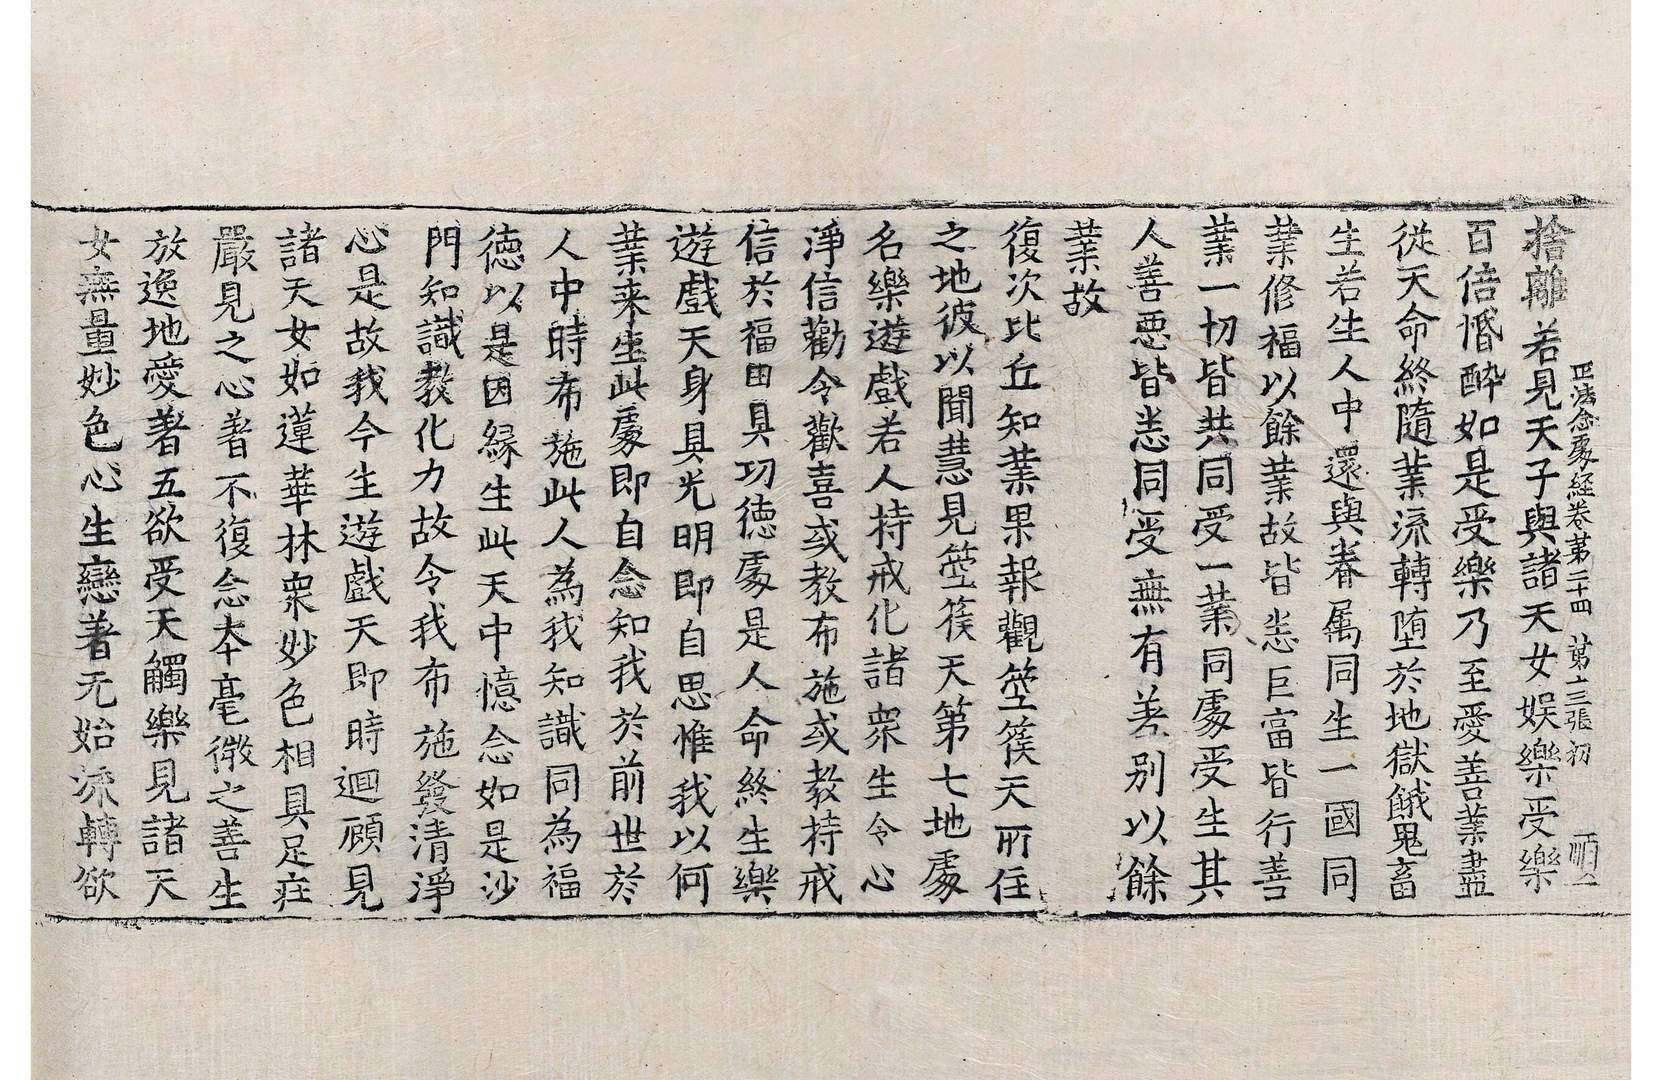 正法念處經卷第二十四　第十三張　初　順
捨離若見天子與諸天女娛樂受樂
百倍惛醉如是受樂乃至愛善業盡
從天命終隨業流轉墮於地獄餓鬼畜
生若生人中還與眷属同生一國同
業修福以餘業故皆悉巨富皆行善
業一切皆共同受一業同處受生其
人善惡皆悉同受無有差別以餘
業故
復次比丘知業果報觀箜篌天所住
之地彼以聞慧見箜篌天第七地處
名樂遊戲若人持戒化諸衆生令心
淨信勸令歡喜或教布施或教持戒
信於福田具功徳處是人命終生樂
遊戲天身具光明即自思惟我以何
業来生此處即自念知我於前世於
人中時布施此人為我知識同為福
徳以是因緣生此天中憶念如是沙
門知識教化力故令我布施發清淨
心是故我今生遊戲天即時迴顧見
諸天女如蓮華林衆妙色相具足莊
嚴見之心著不復念本毫微之善生
放逸地愛著五欲受天觸樂見諸天
女無量妙色心生戀著无始流轉欲